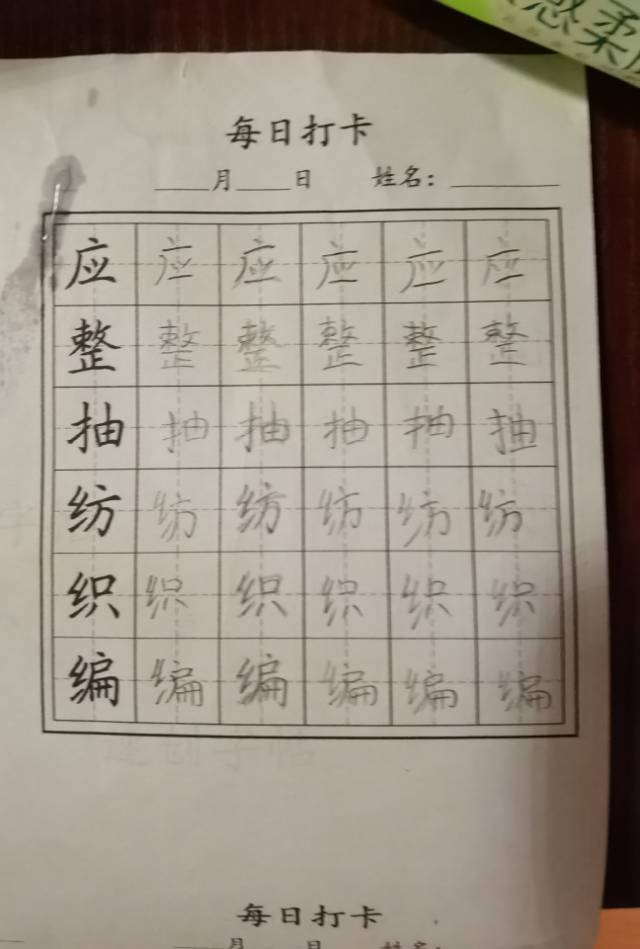 感柔
每日打卡
____月____日 姓名：________
应 应 应 应 应 应
整 整 整 整 整 整
抽 抽 抽 抽 抽 抽
纺 纺 纺 纺 纺 纺
织 织 织 织 织 织
编 编 编 编 编 编
每日打卡
月 日 姓名：